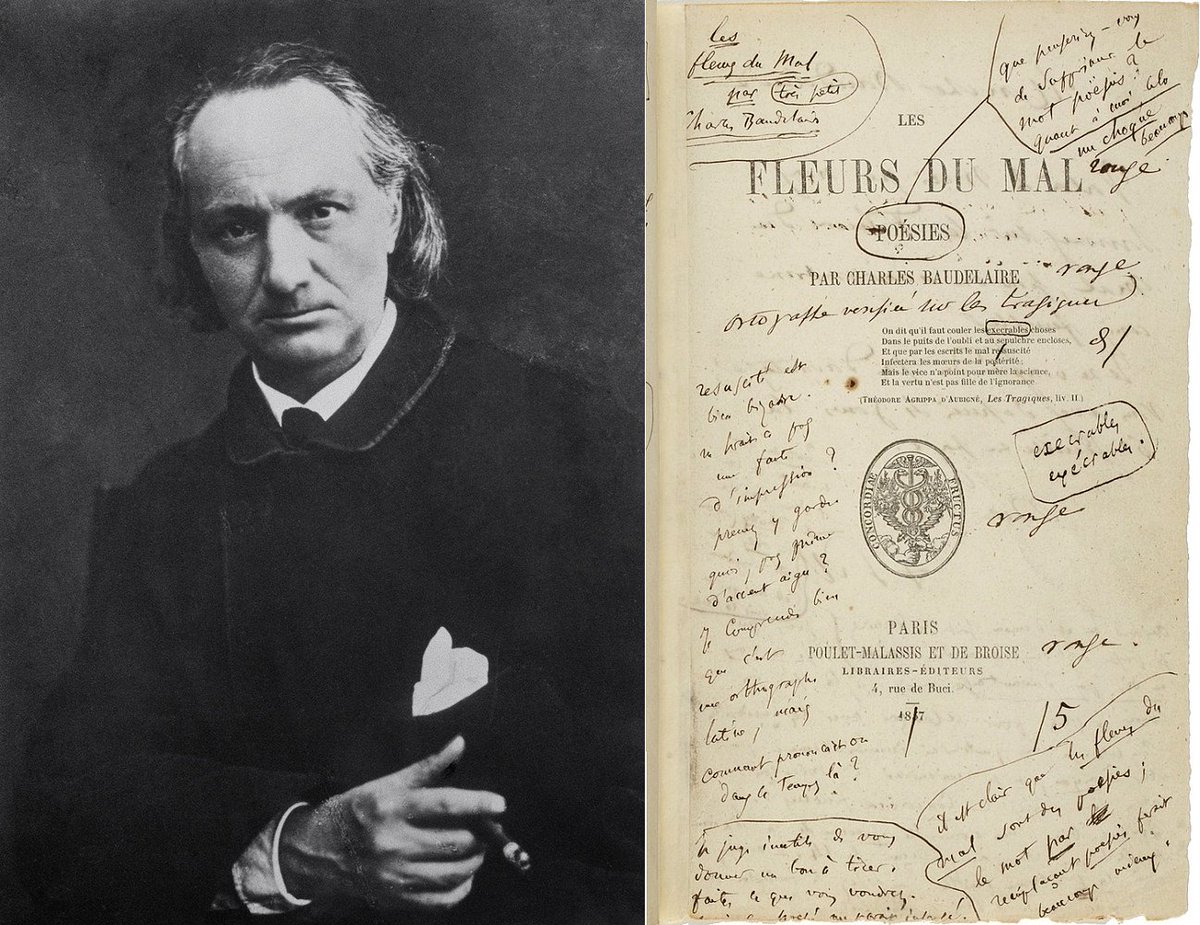 les
fleurs du Mal
par très petit
Charles Baudelaire
que penseriez-vous
de supprimer le
mot poësies?
quant à moi, cela
me choque
beaucoup
rouge
LES
FLEURS DU MAL
POÉSIES
PAR CHARLES BAUDELAIRE
rouge
ortographe verifiée sur les tragiques
On dit qu'il faut couler les execrables choses
Dans le puits de l'oubli et au sepulchre encloses,
Et que par les escrits le mal resuscité
Infectera les mœurs de la postérité;
Mais le vice n'a point pour mère la science,
Et la vertu n'est pas fille de l'ignorance
(THÉODORE AGRIPPA D'AUBIGNÉ, Les Tragiques, liv. II.)
resuscité est
bien bizarre.
ne serait-ce pas
une faute
d'impression?
prenez y garde
quoi, pas même
d'accent aigu?
Je comprends bien
que c'est
une orthographe
latine, mais
comment prononçait-on
dans le temps là?
execrables
exécrables.
rouge
CONCORDIÆ FRUCTUS
PARIS
POULET-MALASSIS ET DE BROISE
rouge.
LIBRAIRES-ÉDITEURS
4, rue de Buci.
1857
/5
il est clair que les fleurs du
mal sont des poësies;
le mot par
remplaçant poësies ferait
beaucoup mieux.
Je juge inutile de vous
donner un bon à tirer.
faites ce que vous voudrez.